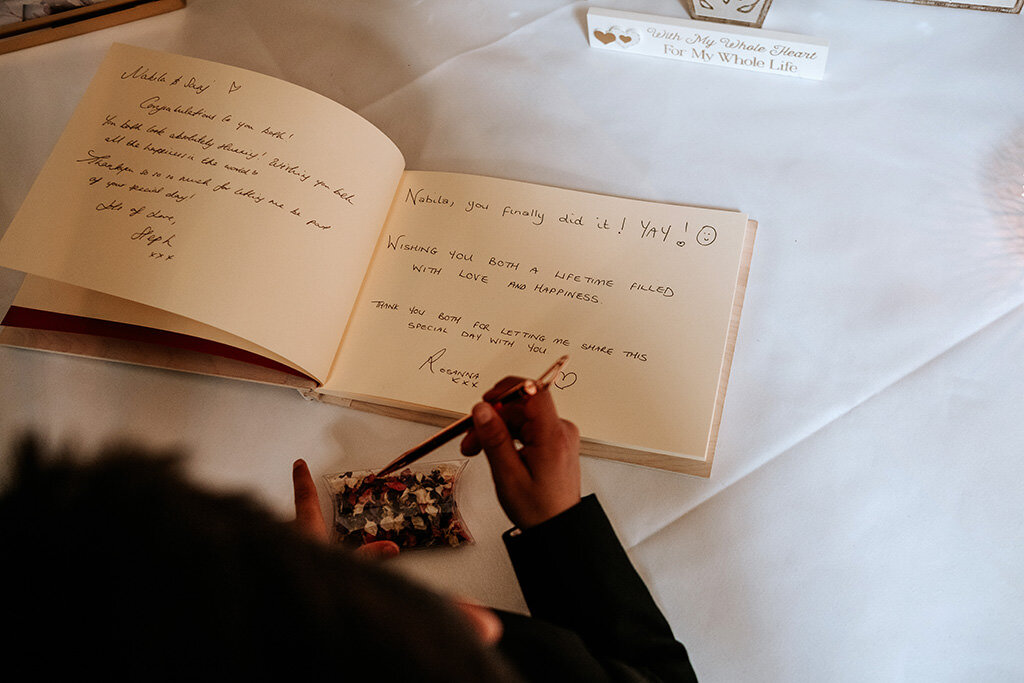 With My Whole Heart
For My Whole Life
Nabila & Suraj
Congratulations to you both!
You both look absolutely stunning! Wishing you both
all the happiness in the world
Thankyou so so so much for letting me be part
of your special day!
Lots of Love,
Steph
xxx
Nabila, you finally did it! YAY!
WISHING YOU BOTH A LIFETIME FILLED
WITH LOVE AND HAPPINESS.
THANK YOU BOTH FOR LETTING ME SHARE THIS
SPECIAL DAY WITH YOU
ROSANNA
xxx